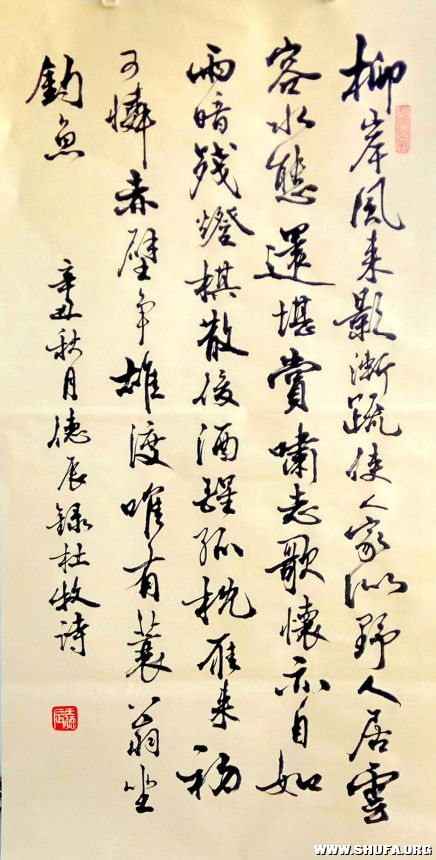 柳岸风来影渐疏使人家似野人居云
容水态还堪赏啸志歌怀亦自如
雨暗残灯棋散后酒醒孤枕雁来初
可怜赤壁争雄渡唯有蓑翁坐
钓鱼
辛丑秋月德辰录杜牧诗
WWW.SHUFA.ORG